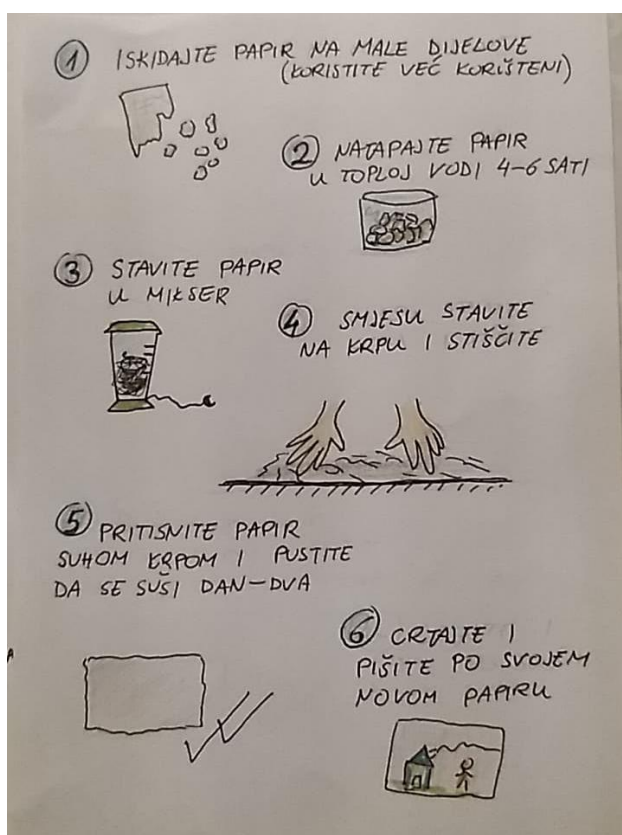 1 ISKIDAJTE PAPIR NA MALE DIJELOVE
(KORISTITE VEĆ KORIŠTENI)
2 NATAPAJTE PAPIR
U TOPLOJ VODI 4-6 SATI
3 STAVITE PAPIR
U MIKSER
4 SMJESU STAVITE
NA KRPU I STIŠĆITE
5 PRITISNITE PAPIR
SUHOM KRPOM I PUSTITE
DA SE SUŠI DAN-DVA
6 CRTAJTE I
PIŠITE PO SVOJEM
NOVOM PAPIRU